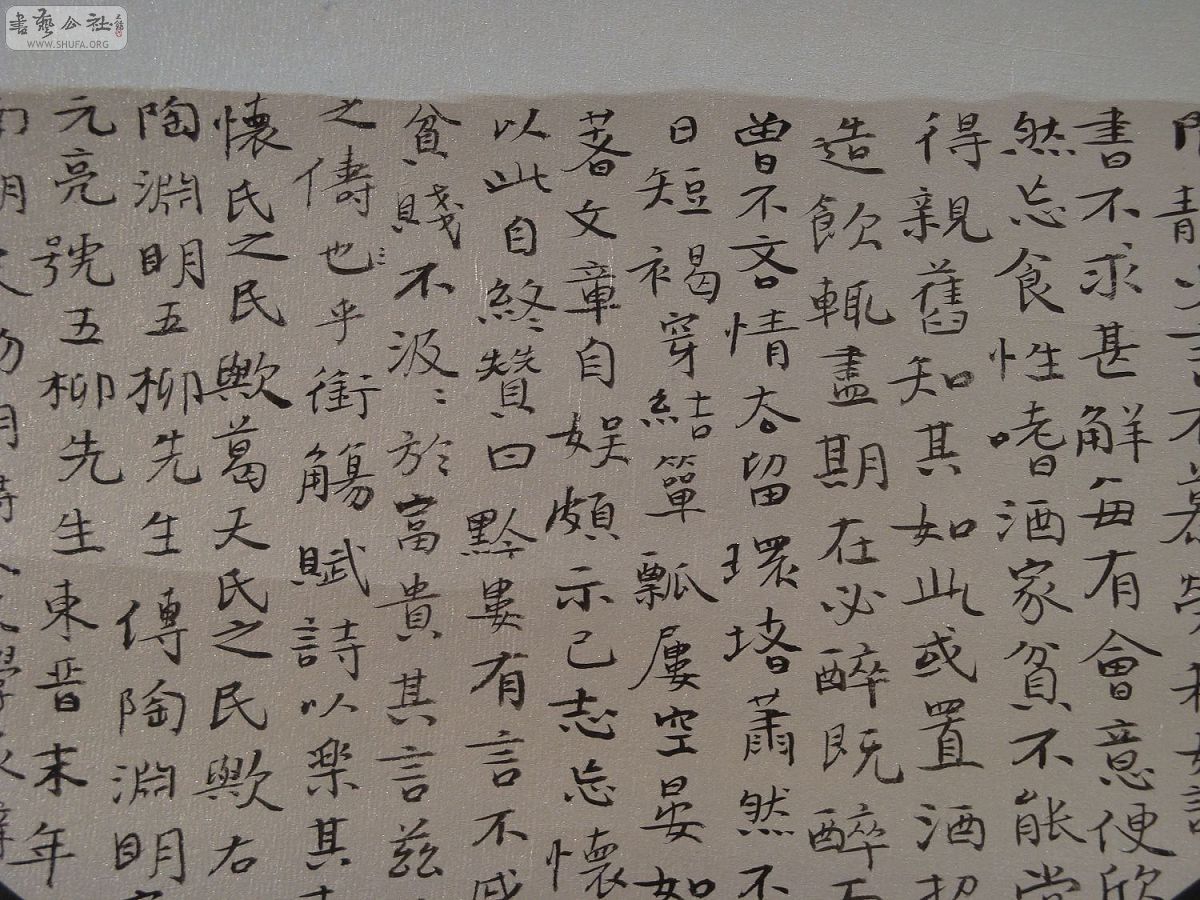 書藝公社
WWW.SHUFA.ORG
書不求甚解每有會意便欣
然忘食性嗜酒家貧不能常
得親舊知其如此或置酒招
造飲輒盡期在必醉既醉
曾不吝情去留環堵蕭然不
日短褐穿結簞瓢屢空晏如
著文章自娱頗示己志忘懷
以此自終贊曰黔婁有言不戚
貧賤不汲〻於富貴其言茲
之儔也乎銜觴賦詩以樂其
懷氏之民歟葛天氏之民歟右
陶淵明五柳先生傳陶淵明
元亮號五柳先生東晉末年